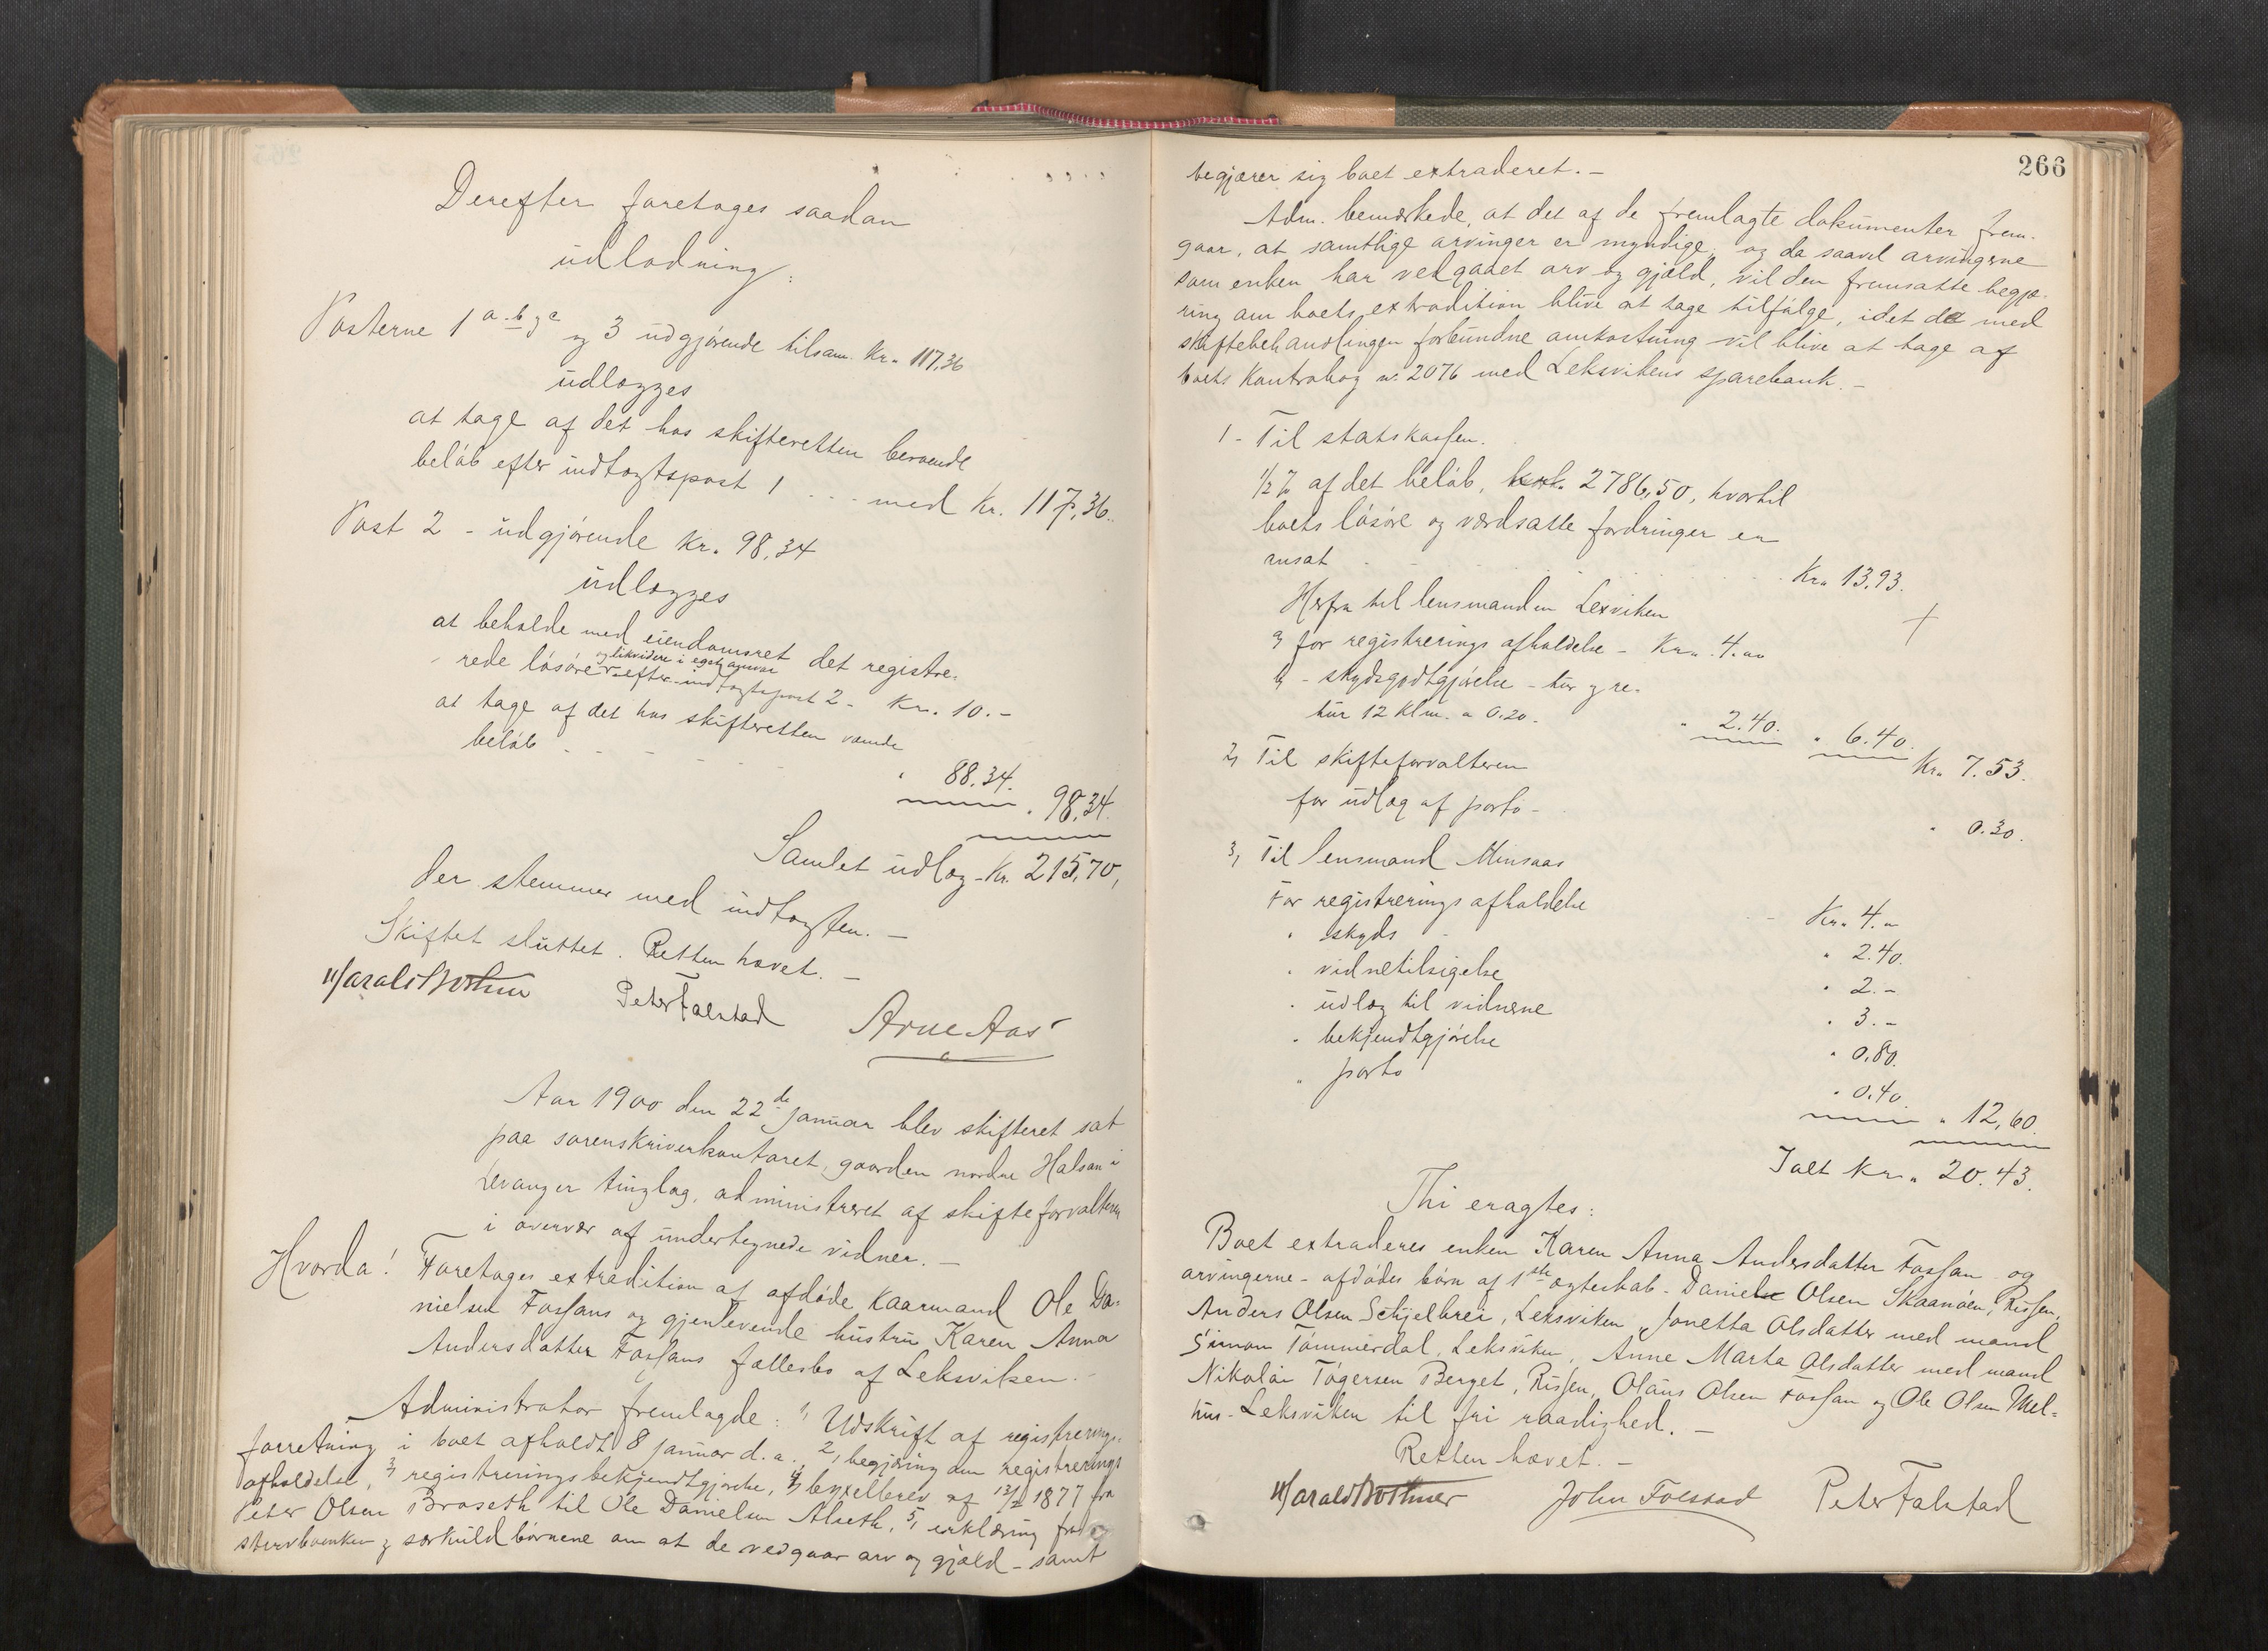 Derefter foretages saadan
udlodning:
Posterne 1 a-b-c og 3 udgjørende tilsam. Kr. 117,36
udlægges
at tage af det hos skifteretten beroende
beløb efter indtægtspost 1 - - - med Kr. 117,36.
Post 2 - udgjørende Kr. 98,34
udlægges
at beholde med eiendomsret det registre-
og likvidere i eget ansvar
rede løsøre efter indtægtspost 2 - Kr. 10.-
at tage af det hos skifteretten værende
beløb - - - - " 88.34.
" 98,34.
Samlet udlæg - Kr. 215,70,
der stemmer med indtægten. -
Skiftet sluttet. Retten hævet. -
Harald Bothner Peter Falstad Arne Aas
Aar 1900 den 22de januar blev skifteret sat
paa sorenskriverkontoret, gaarden nordre Halsan i
Levanger tinglag, administreret af skifteforvalteren
i overvær af undertegnede vidner. -
Hvorda! Foretages extradition af afdøde kaarmand Ole Da-
nielsen Fossans og gjenlevende hustru Karen Anna
Andersdatter Fossans fællesbo af Leksviken. -
Administrator fremlagde: 1, Udskrift af registrerings-
forretning i boet afholdt 8 januar d.a., 2, begjæring om registrerings
afholdelse, 3, registreringsbekjendtgjørelse, 4, bygselbrev af 1877 fra
Peter Olsen Braseth til Ole Danielsen Alseth, 5, erklæring fra
stervboenken og særkuldbørnene om at de vedgaar arv og gjæld - samt
266
begjærer sig boet extraderet. -
Adm. bemærkede, at det af de fremlagte dokumenter frem-
gaar, at samtlige arvinger er myndige, og da saavel arvingerne
som enken har vedgaaet arv og gjæld, vil den fremsatte begjæ-
ring om boets extradition blive at tage tilfølge, idet de med
skiftebehandlingen forbundne omkostning vil blive at tage af
boets Kontrabog nr. 2076 med Leksvikens sparebank. -
1 - Til statskassen.
1/2 % af det beløb, kr. 2786,50, hvortil
boets løsøre og værdsatte fordringer er
ansat Kr. 13,93.
Herfra til lensmanden Lexviken
a, for registrerings afholdelse - Kr. 4.00
b, - skydsgodtgjørelse - tur og re-
tur 12 Klm. a 0.20. " 2.40. " 6.40. Kr. 7.53.
2, Til skifteforvalteren
for udlæg af porto - " 0.30.
3, Til lensmand Minsaas
For registrerings afholdelse Kr. 4.-
" skyds - " 2.40.
" vidnetilsigelse " 2.-
" udlæg til vidnerne " 3.-
" bekjendtgjørelse " 0,80.
" porto " 0.40.
" 12,60.
Ialt Kr. 20.43.
Thi eragtes:
Boet extraderes enken Karen Anna Andersdatter Fossan og
arvingerne - afdødes børn af 1ste ægteskab - Daniel Olsen Skaanøen, Rissen,
Anders Olsen Schjelbrei, Leksviken, Jonetta Olsdatter med mand
Simon Tømmerdal, Leksviken, Anne Marta Olsdatter med mand
Nikolai Tøgersen Berget, Rissen, Olaus Olsen Fossan og Ole Olsen Mel-
hus - Leksviken til fri raadighed. -
Retten hævet. -
Harald Bothner John Folstad Peter Falstad